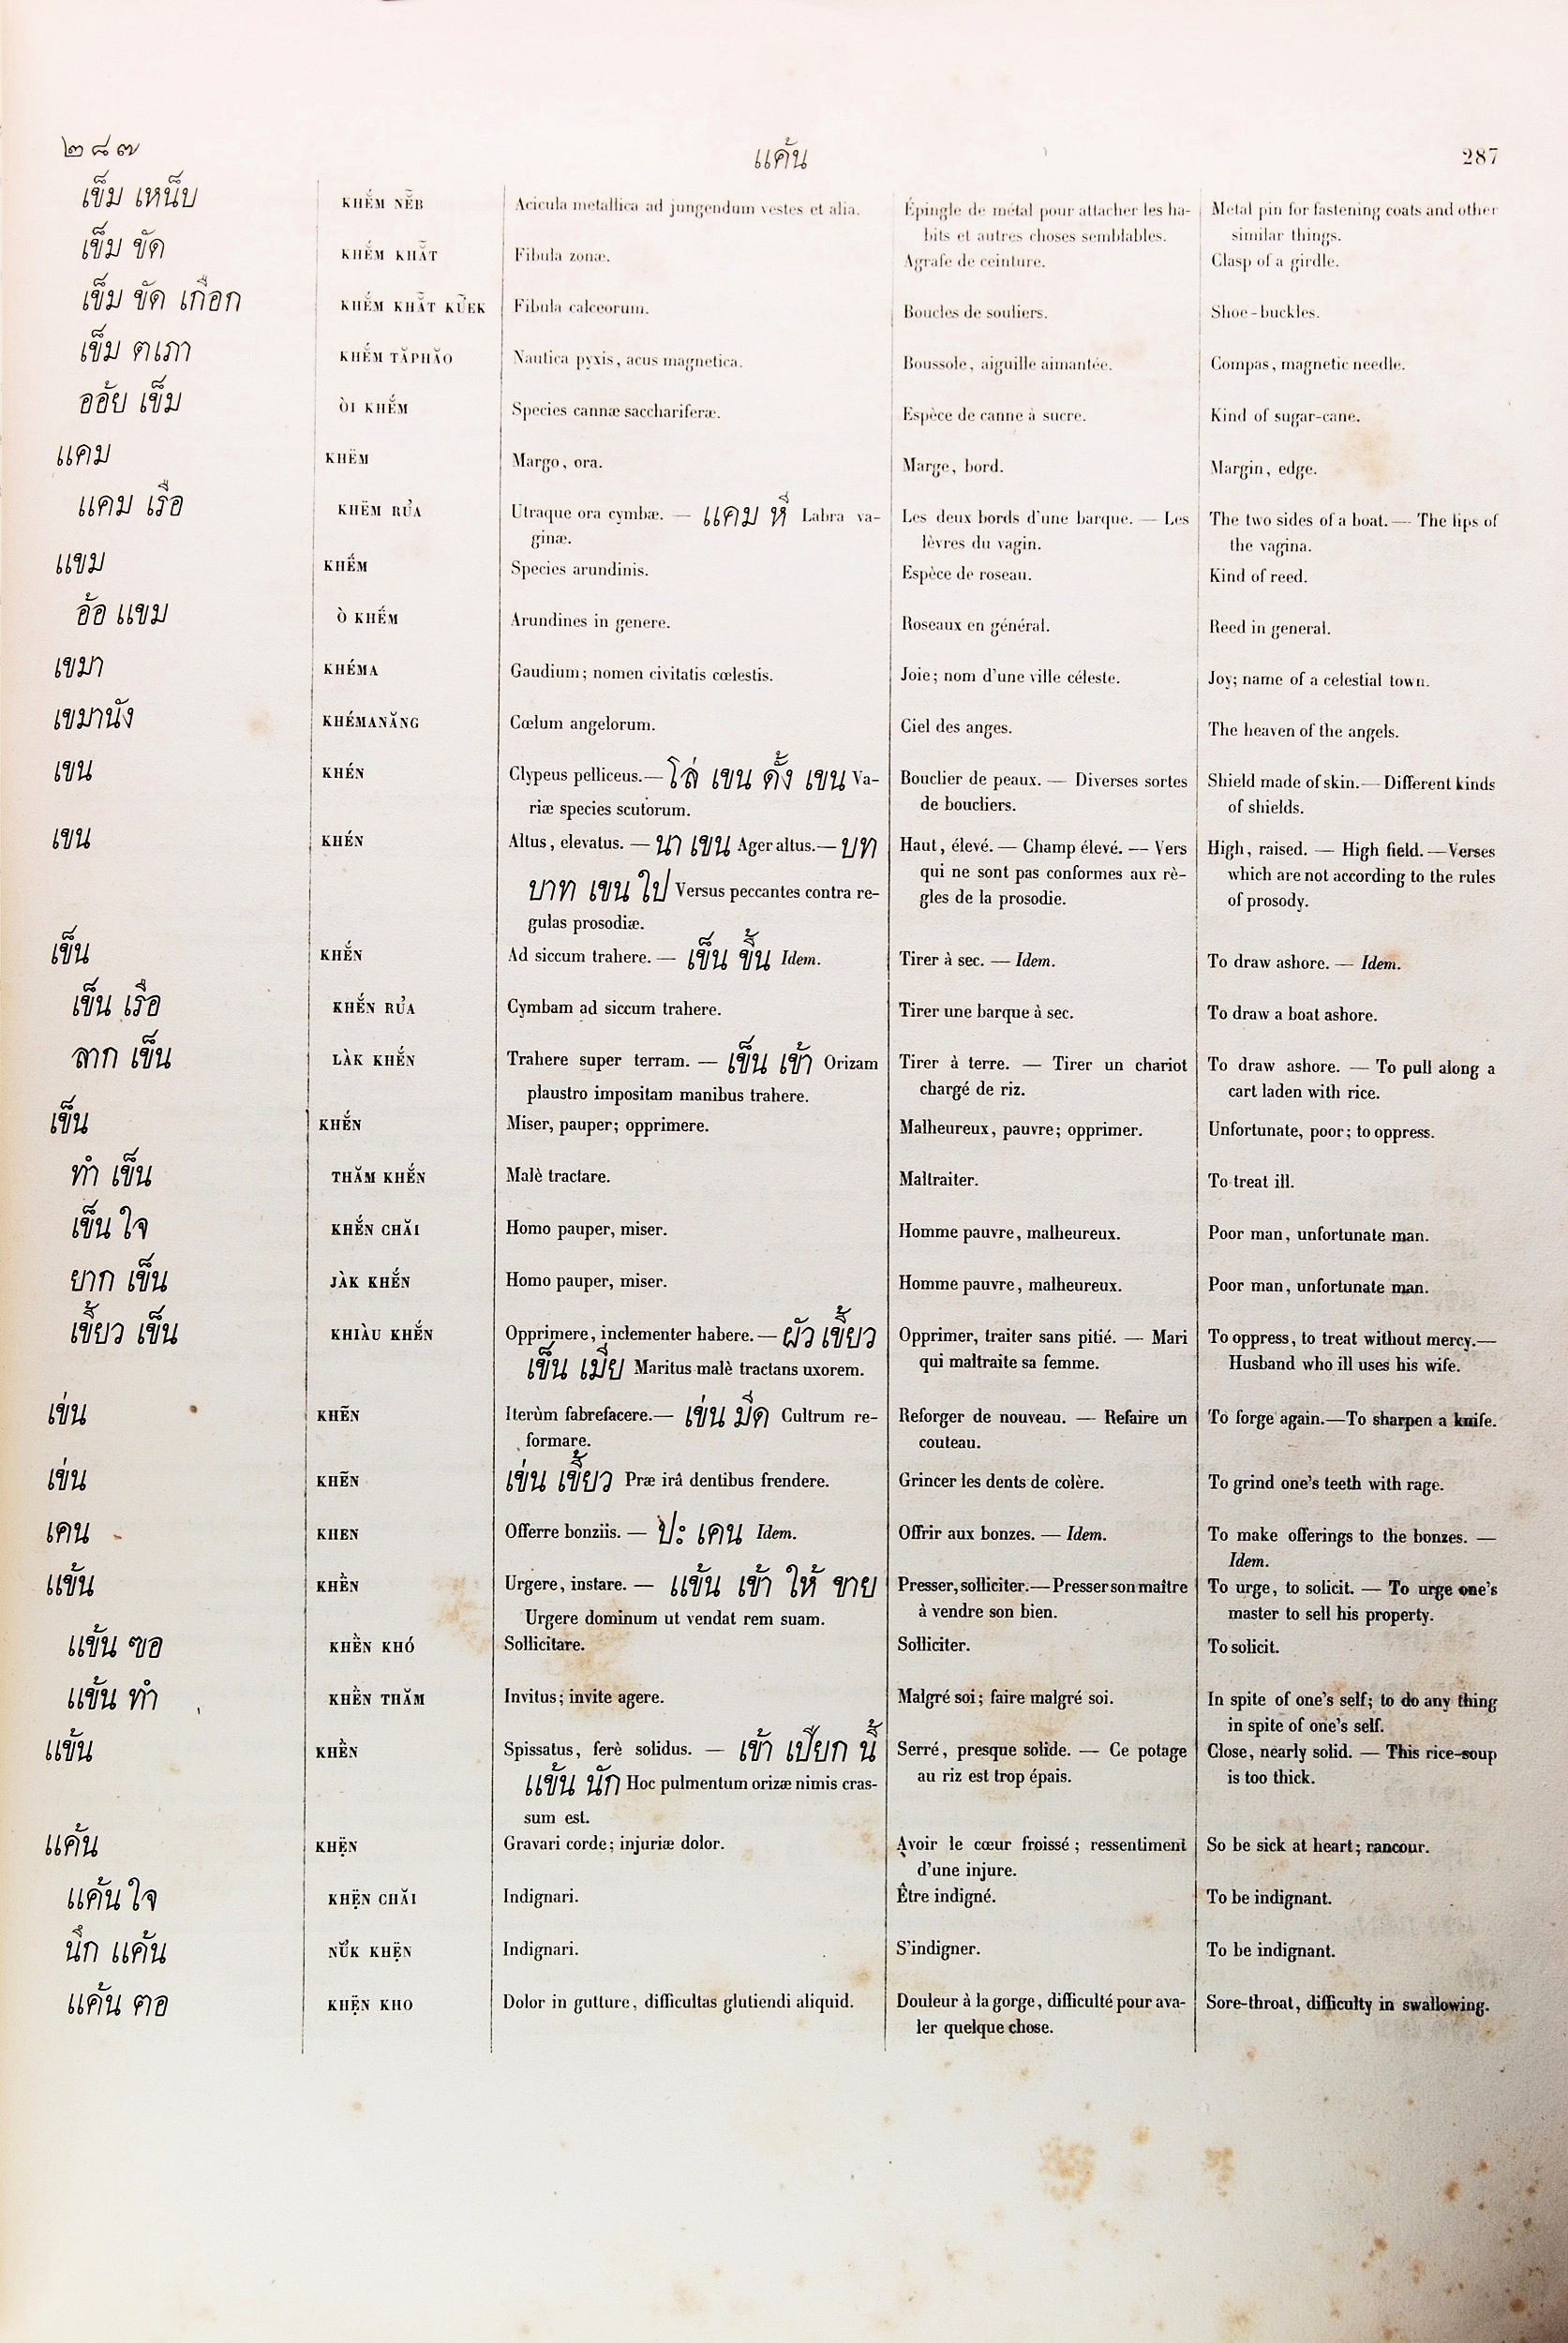 ๒๘๗ แค้น 287
เข็ม เหน็บ KHḖM NẼB Acicula metallica ad jungendum vestes et alia. Épingle de métal pour attacher les ha- Metal pin for fastening coats and other
bits et autres choses semblables. similar things.
เข็ม ขัด KHḖM KHẴT Fibula zonæ. Agrafe de ceinture. Clasp of a girdle.
เข็ม ขัด เกือก KHḖM KHẴT KŨEK Fibula calceorum. Boucles de souliers. Shoe-buckles.
เข็ม ตเภา KHḖM TĂPHĂO Nautica pyxis, acus magnetica. Boussole, aiguille aimantée. Compas, magnetic needle.
ออ้ย เข็ม ÒI KHḖM Species cannæ sacchariferæ. Espèce de canne à sucre. Kind of sugar-cane.
แคม KHËM Margo, ora. Marge, bord. Margin, edge.
แคม เรือ KHËM RỦA Utraque ora cymbæ. — แคม หี Labra va- Les deux bords d'une barque. — Les The two sides of a boat. — The lips of
ginæ. lèvres du vagin. the vagina.
แขม KHḖM Species arundinis. Espèce de roseau. Kind of reed.
อ้อ แขม Ò KHḖM Arundines in genere. Roseaux en général. Reed in general.
เขมา KHÉMA Gaudium; nomen civitatis cœlestis. Joie; nom d'une ville céleste. Joy; name of a celestial town.
เขมานัง KHÉMANĂNG Cœlum angelorum. Ciel des anges. The heaven of the angels.
เขน KHÉN Clypeus pelliceus.— โล่ เขน ดั้ง เขน Va- Bouclier de peaux. — Diverses sortes Shield made of skin.— Different kinds
riæ species scutorum. de boucliers. of shields.
เขน KHÉN Altus, elevatus. — นา เขน Ager altus.— บท Haut, élevé. — Champ élevé. — Vers High, raised. — High field. — Verses
บาท เขน ใป Versus peccantes contra re- qui ne sont pas conformes aux rè- which are not according to the rules
gulas prosodiæ. gles de la prosodie. of prosody.
เข็น KHḖN Ad siccum trahere. — เข็น ขึ้น Idem. Tirer à sec. — Idem. To draw ashore. — Idem.
เข็น เรือ KHḖN RỦA Cymbam ad siccum trahere. Tirer une barque à sec. To draw a boat ashore.
ลาก เข็น LÀK KHḖN Trahere super terram. — เข็น เข้า Orizam Tirer à terre. — Tirer un chariot To draw ashore. — To pull along a
plaustro impositam manibus trahere. chargé de riz. cart laden with rice.
เข็น KHḖN Miser, pauper; opprimere. Malheureux, pauvre; opprimer. Unfortunate, poor; to oppress.
ทำ เข็น THĂM KHḖN Malè tractare. Maltraiter. To treat ill.
เข็น ใจ KHḖN CHĂI Homo pauper, miser. Homme pauvre, malheureux. Poor man, unfortunate man.
ยาก เข็น JÀK KHḖN Homo pauper, miser. Homme pauvre, malheureux. Poor man, unfortunate man.
เขี้ยว เข็น KHIÀU KHḖN Opprimere, inclementer habere. — ผัว เขี้ยว Opprimer, traiter sans pitié. — Mari To oppress, to treat without mercy.—
เข็น เมีย Maritus malè tractans uxorem. qui maltraite sa femme. Husband who ill uses his wife.
เข่น KHẼN Iterùm fabrefacere.— เข่น มีด Cultrum re- Reforger de nouveau. — Refaire un To forge again.—To sharpen a knife.
formare. couteau.
เข่น KHẼN เข่น เขี้ยว Præ irâ dentibus frendere. Grincer les dents de colère. To grind one's teeth with rage.
เคน KHEN Offerre bonziis. — ปะ เคน Idem. Offrir aux bonzes. — Idem. To make offerings to the bonzes. —
Idem.
แข้น KHÈ̈N Urgere, instare. — แข้น เข้า ให้ ขาย Presser, solliciter.—Presser son maître To urge, to solicit. — To urge one's
Urgere dominum ut vendat rem suam. à vendre son bien. master to sell his property.
แข้น ฃอ KHÈ̈N KHÓ Sollicitare. Solliciter. To solicit.
แข้น ทำ KHÈ̈N THĂM Invitus; invite agere. Malgré soi; faire malgré soi. In spite of one's self; to do any thing
in spite of one's self.
แข้น KHÈ̈N Spissatus, ferè solidus. — เข้า เปียก นี้ Serré, presque solide. — Ce potage Close, nearly solid. — This rice-soup
แข้น นัก Hoc pulmentum orizæ nimis cras- au riz est trop épais. is too thick.
sum est.
แค้น KHẸ̈N Gravari corde; injuriæ dolor. Avoir le cœur froissé; ressentiment So be sick at heart; rancour.
d'une injure.
แค้น ใจ KHẸ̈N CHĂI Indignari. Être indigné. To be indignant.
นึก แค้น NỦ̆K KHẸ̈N Indignari. S'indigner. To be indignant.
แค้น ฅอ KHẸ̈N KHO Dolor in gutture, difficultas glutiendi aliquid. Douleur à la gorge, difficulté pour ava- Sore-throat, difficulty in swallowing.
ler quelque chose.